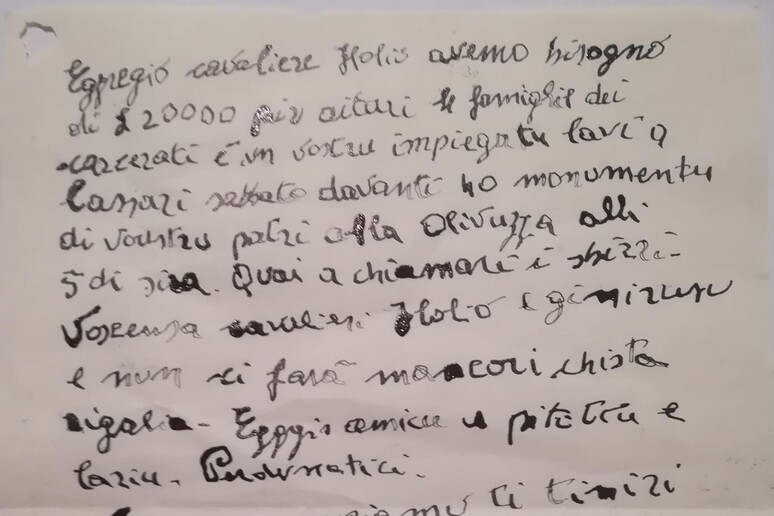 Egpregio cavaliere Flolio avemo bisogno
di £ 20000 pir aitari le famiglie dei
carcerati è un vostru impiegatu lavi a
lassari sabbato davanti lo monumentu
di vostru patri alla Olivuzza alli
5 di sira. Quai a chiamari i sbirri-
Voscenza cavalieri Flolio è ginirusu
e nun ci farà mancari chista
rigalia- Eggpis amicu u e
laziu. Pirdunatici.
ci